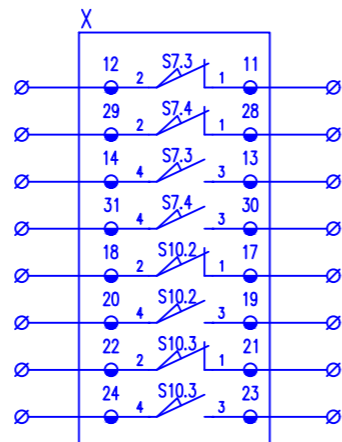 X
12 2 S7.3 1 11
29 2 S7.4 1 28
14 4 S7.3 3 13
31 4 S7.4 3 30
18 2 S10.2 1 17
20 4 S10.2 3 19
22 2 S10.3 1 21
24 4 S10.3 3 23